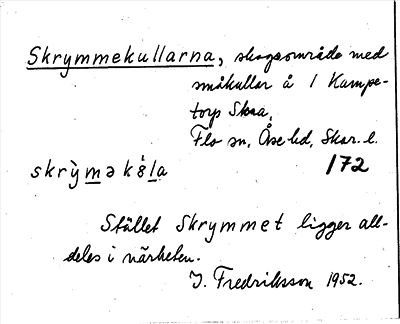 Skrymmekullarna, skogsområde med
småkullar å 1 Kampe-
torp Skaa,
Flo sn, Åse hd, Skar. l.
skrỳmə kʹ8la 172
Stället Skrymmet ligger all-
deles i närheten.
J. Fredriksson 1952.